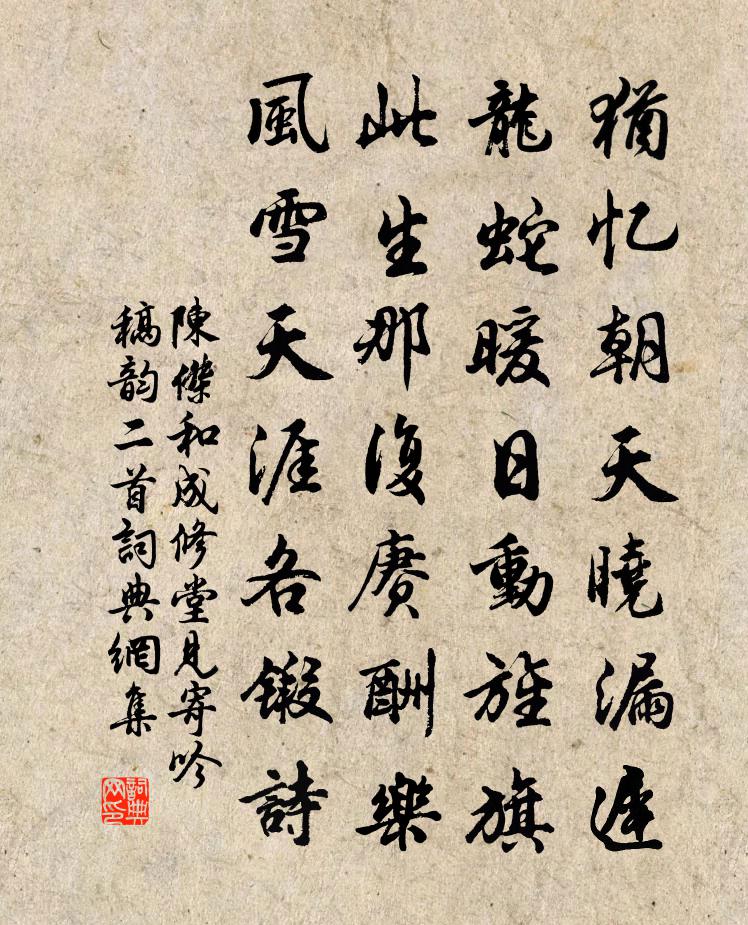 猶忆朝天曉漏遲
龍蛇暖日動旌旗
此生那復赓酬樂
風雪天涯各鍛詩
陳傑和成修堂見寄吟
稿韵二首詞典網集
詞典网印